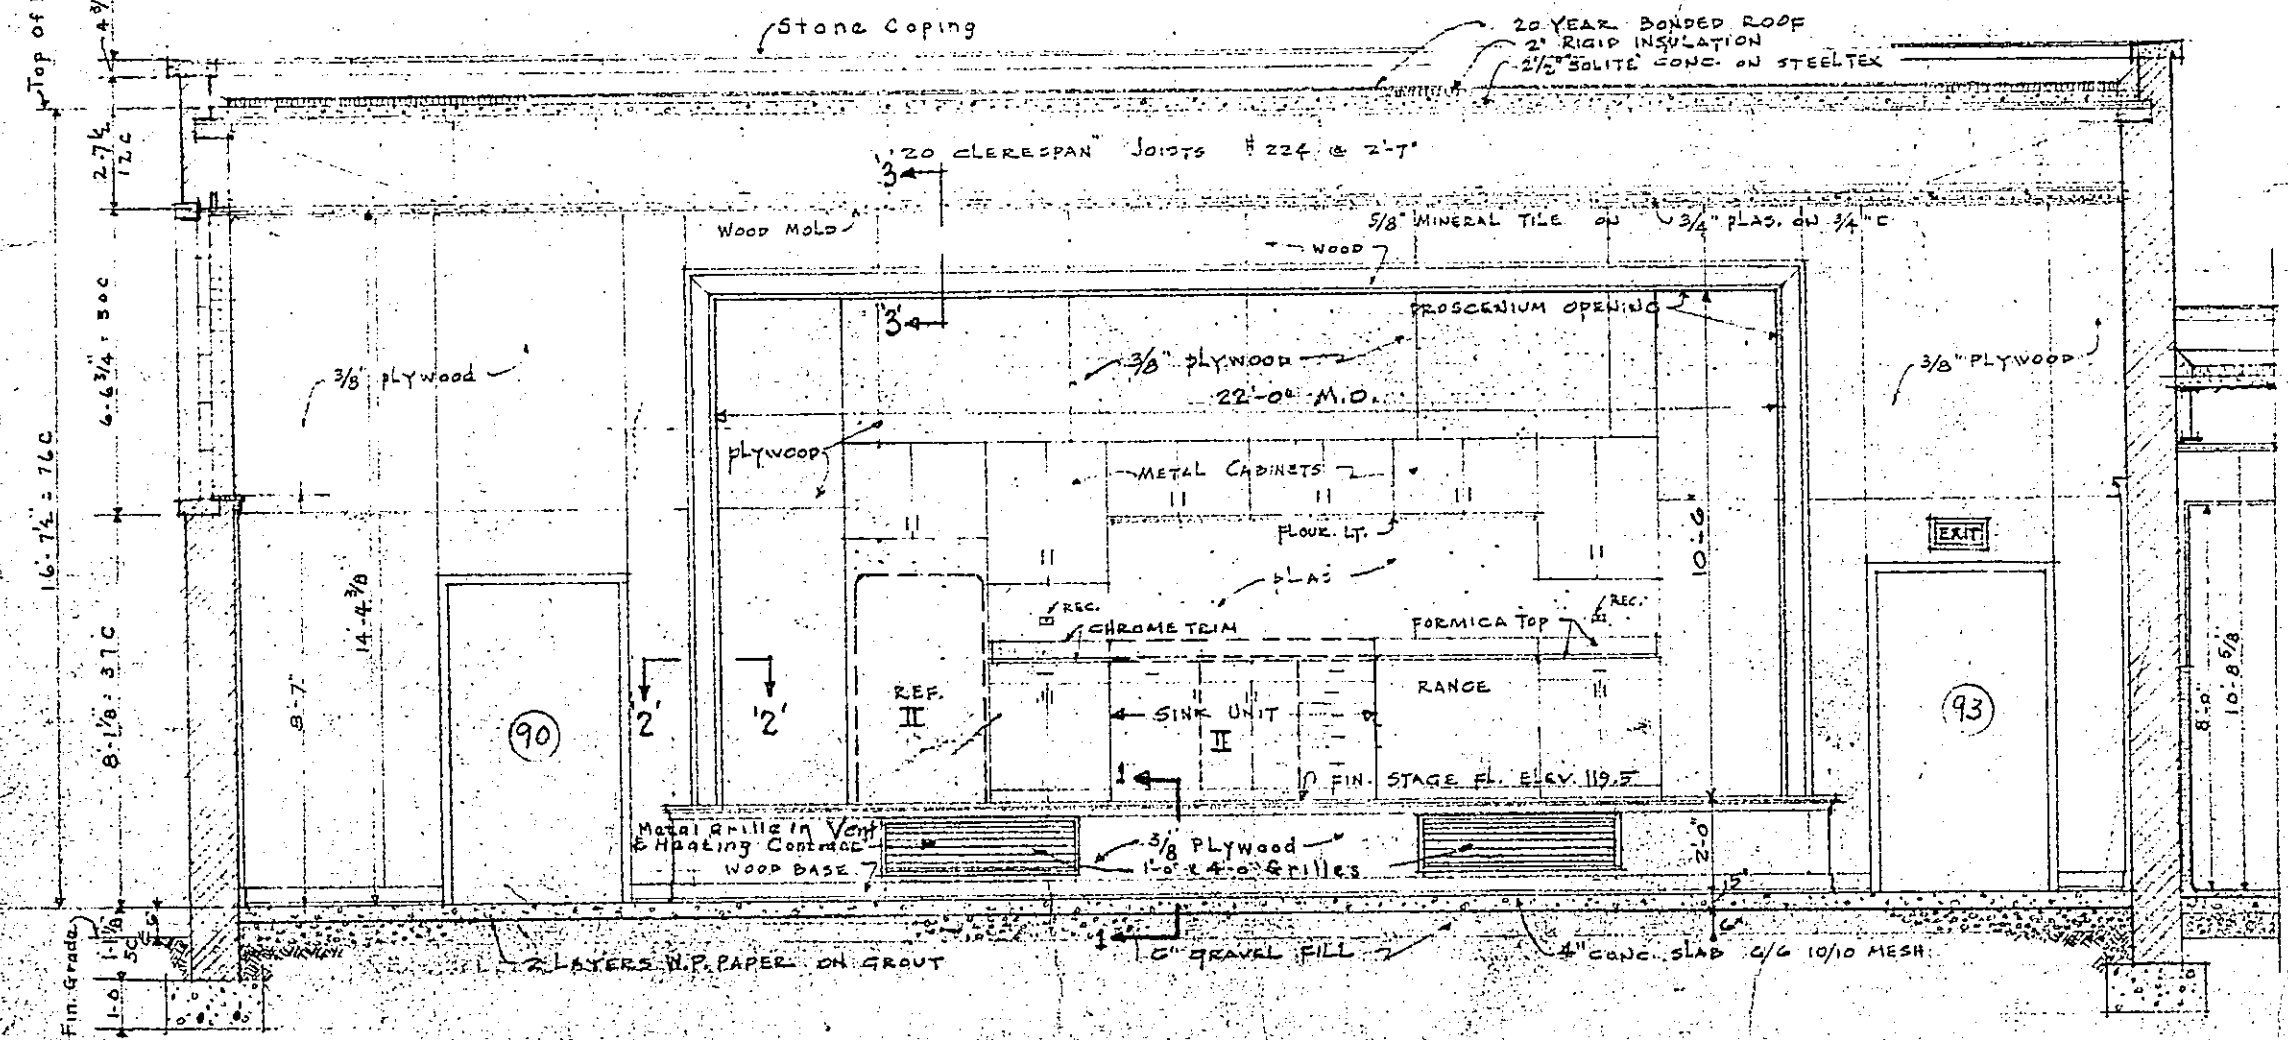 Top of
Stone Coping
20 YEAR BONDED ROOF
2" RIGID INSULATION
2 1/2" SOLITE CONC. ON STEELTEX
2-7 1/2
12C
20 CLERESPAN" JOISTS # 224 @ 2'-7"
'3'
WOOD MOLD
5/8" MINERAL TILE ON 3/4" PLAS. ON 3/4" C
WOOD
6-6 3/4" = 30C
'3'
PROSCENIUM OPENING
3/8" PLYWOOD
3/8" PLYWOOD
3/8" PLYWOOD
22'-0" M.O.
16'-7 1/2" = 76C
PLYWOOD
METAL CABINETS
FLOUR. LT.
EXIT
10'-6"
PLAS
14'-4 3/8
REC.
REC.
CHROME TRIM
FORMICA TOP
8'-1 1/8" = 37C
8'-7"
REF.
II
RANGE
90
'2'
'2'
SINK UNIT
II
93
8'-0"
10'-8 5/8"
1
FIN. STAGE FL. ELEV. 119.5
Metal Grille in Vent
& Heating Contract
3/8 PLYWOOD
WOOD BASE
1'-0" x 4'-0" Grilles
2'-0"
6"
Fin. Grade
1'-1 1/8"
5C
1-0
1
2 LAYERS W.P. PAPER ON GROUT
6" GRAVEL FILL
4" CONC. SLAB 6/6 10/10 MESH